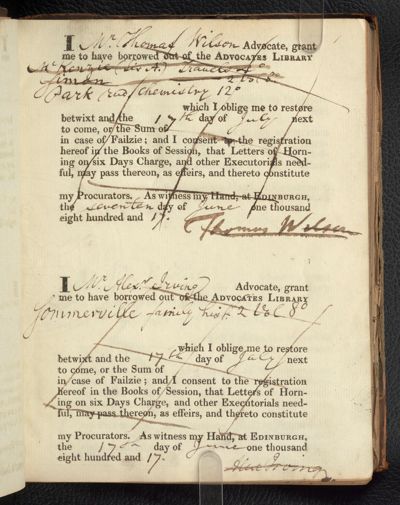 I Mr. Thomas Wilson Advocate, grant
me to have borrowed out of the ADVOCATES LIBRARY
McKenzie Travels
Simon
Park Chemistry 12o
which I oblige me to restore
betwixt and the 17th day of July next
to come, or the Sum of
in case of Failzie; and I consent to the registration
hereof in the Books of Session, that Letters of Horn-
ing on six Days Charge, and other Executorials need-
ful, may pass thereon, as effeirs, and thereto constitute
my Procurators. As witness my Hand, at EDINBURGH,
the seventen day of June one thousand
eight hundred and 17.
Thomas Wilson
I Mr. Alexr. Irving Advocate, grant
me to have borrowed out of the ADVOCATES LIBRARY
Sommerville family hist. 2 Vol 8o
which I oblige me to restore
betwixt and the 17th day of July next
to come, or the Sum of
in case of Failzie; and I consent to the registration
hereof in the Books of Session, that Letters of Horn-
ing on six Days Charge, and other Executorials need-
ful, may pass thereon, as effeirs, and thereto constitute
my Procurators. As witness my Hand, at EDINBURGH,
the 17th day of June one thousand
eight hundred and 17.
Alex Irving